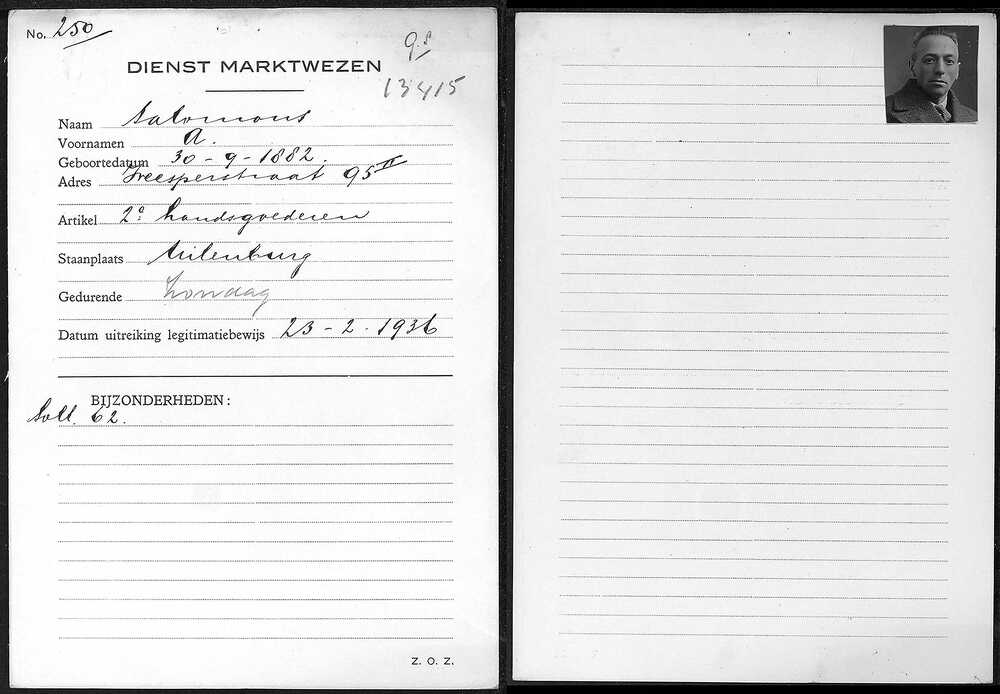 No. 250
9.8
DIENST MARKTWEZEN
13415
Naam Salomons
Voornamen A.
Geboortedatum 30-9-1882.
Adres Weesperstraat 95 II
Artikel 2e handsgoederen
Staanplaats Uilenburg
Gedurende Zondag
Datum uitreiking legitimatiebewijs 23-2-1936
BIJZONDERHEDEN:
Soll. 62.
Z. O. Z.